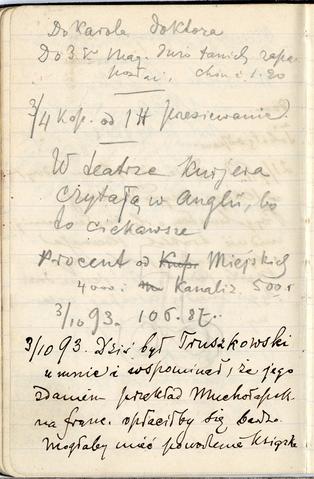 Do Karola doktora
Do 3. V. Mag. Duro tanich zapa
3/4 Kop. od 1 H przesiewanie.
W teatrze Kurjera
czytają w Anglii, bo
to ciekawsze
Procent od Miejskich
4000 i Kanaliz. 500 r
3/10 93. 106.
3/10 93. Dziś był Truszkowski
u mnie i wspominał, że jego
zdaniem przekład Muchołapek
na franc. opłaciłby się bardzo.
Mogłaby mieć powodzenie książka